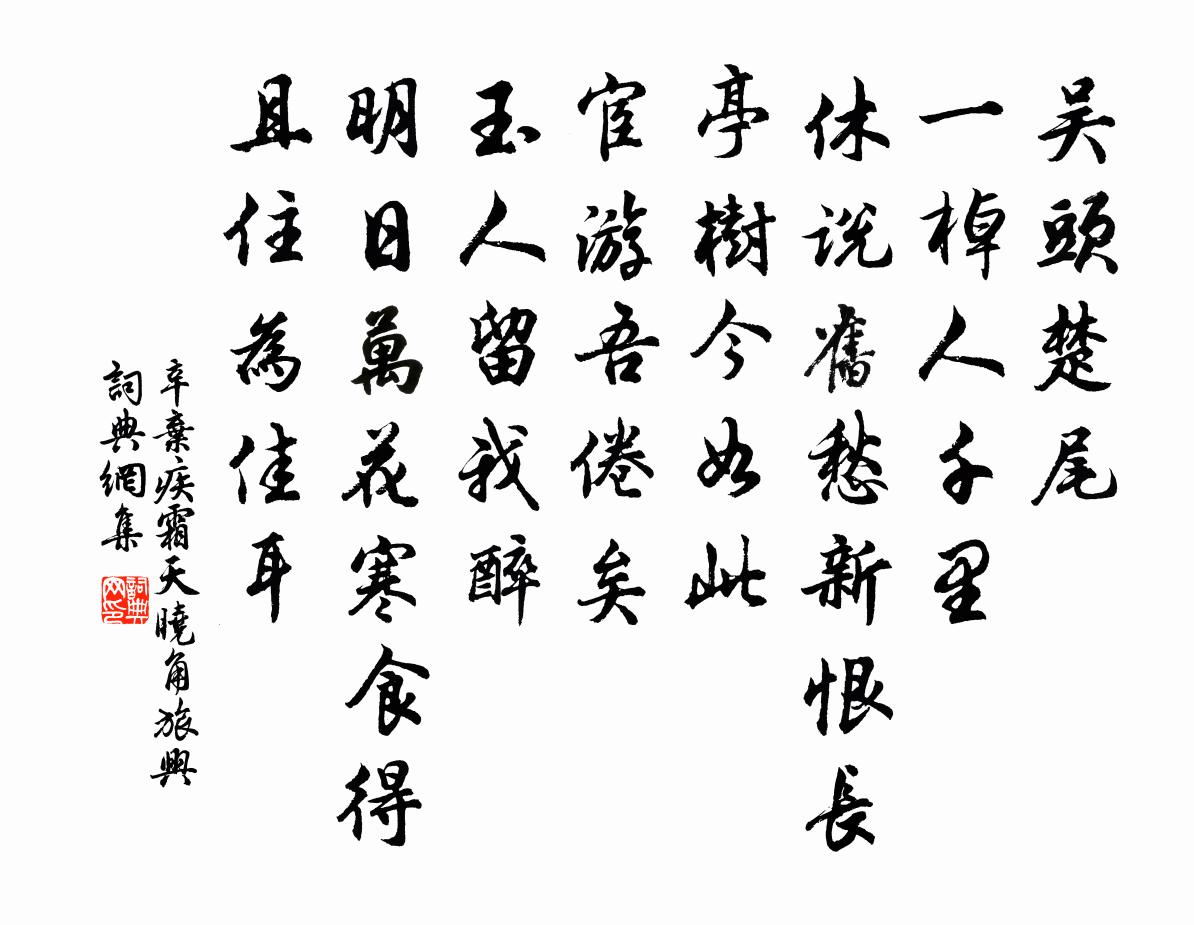 吴頭楚尾
一棹人千里
休説舊愁新恨長
亭樹今如此
宦游吾倦矣
玉人留我醉
明日萬花寒食得
且住為佳耳
辛棄疾霜天曉角旅興
詞典網集
詞典网印